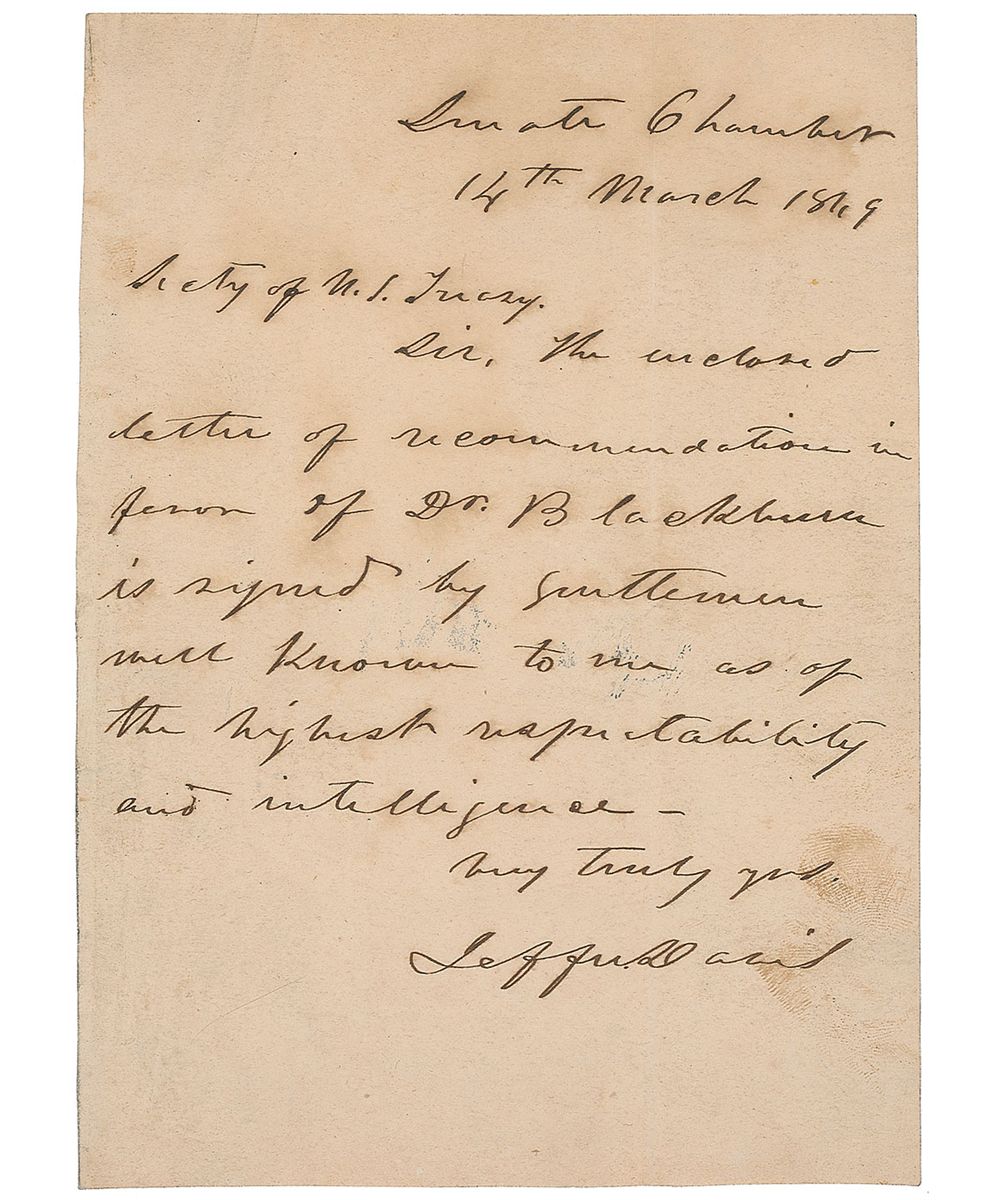 Senate Chamber
14th March 1849
Secty of U.S. Treasy.
Sir, The enclosed
letter of recommendation in
favor of Dr. Blackburn
is signed by gentlemen
well known to me as of
the highest respectability
and intelligence –
very truly yrs.
Jeffn. Davis